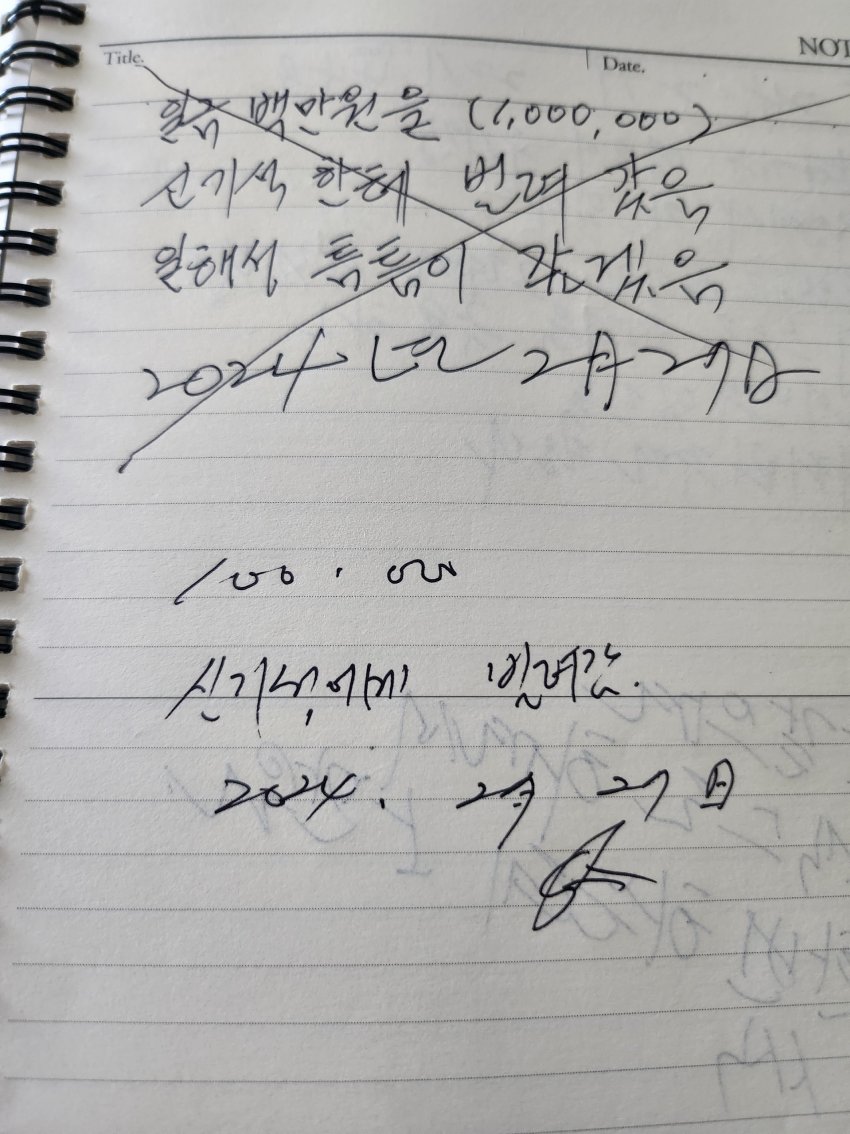 Title.
Date.
NOT
일금 백만원을 (1,000,000)
신기석 한테 빌려 갔음
일해서 틈틈이 갚겠음
2024년 2月 27日
100.000
신기석에게 빌려감.
2024. 2月 27日